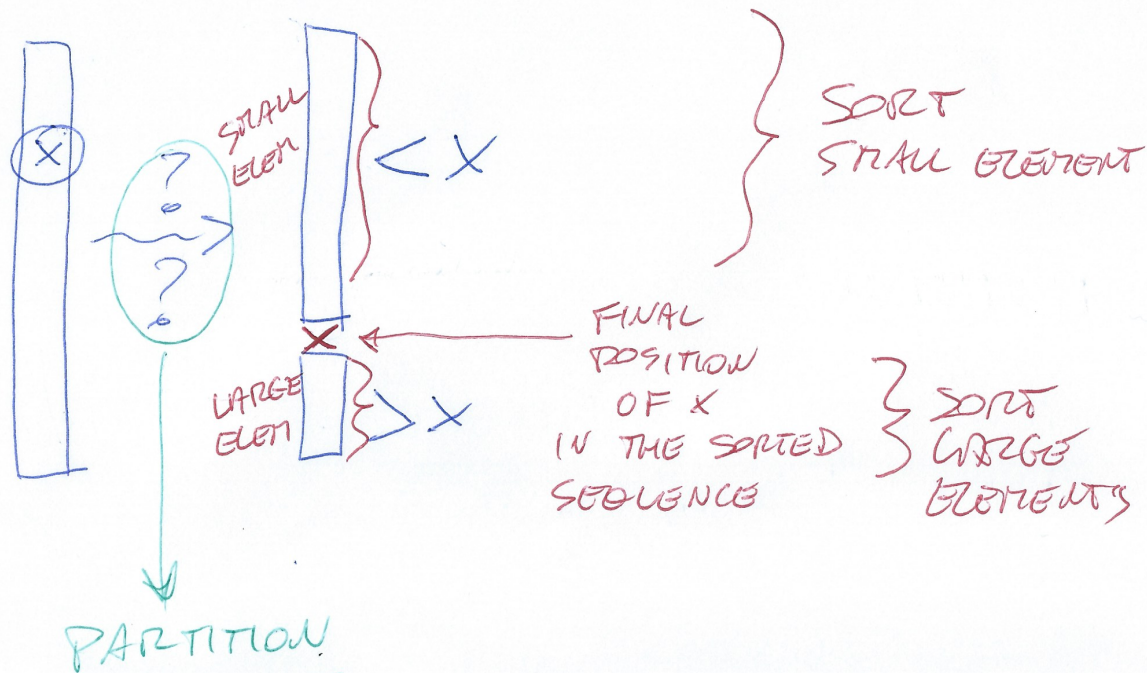 X
?
?
SMALL
ELEM
< X
SORT
SMALL ELEMENT
X
FINAL
POSITION
OF X
IN THE SORTED
SEQUENCE
LARGE
ELEM
> X
SORT
LARGE
ELEMENTS
PARTITION